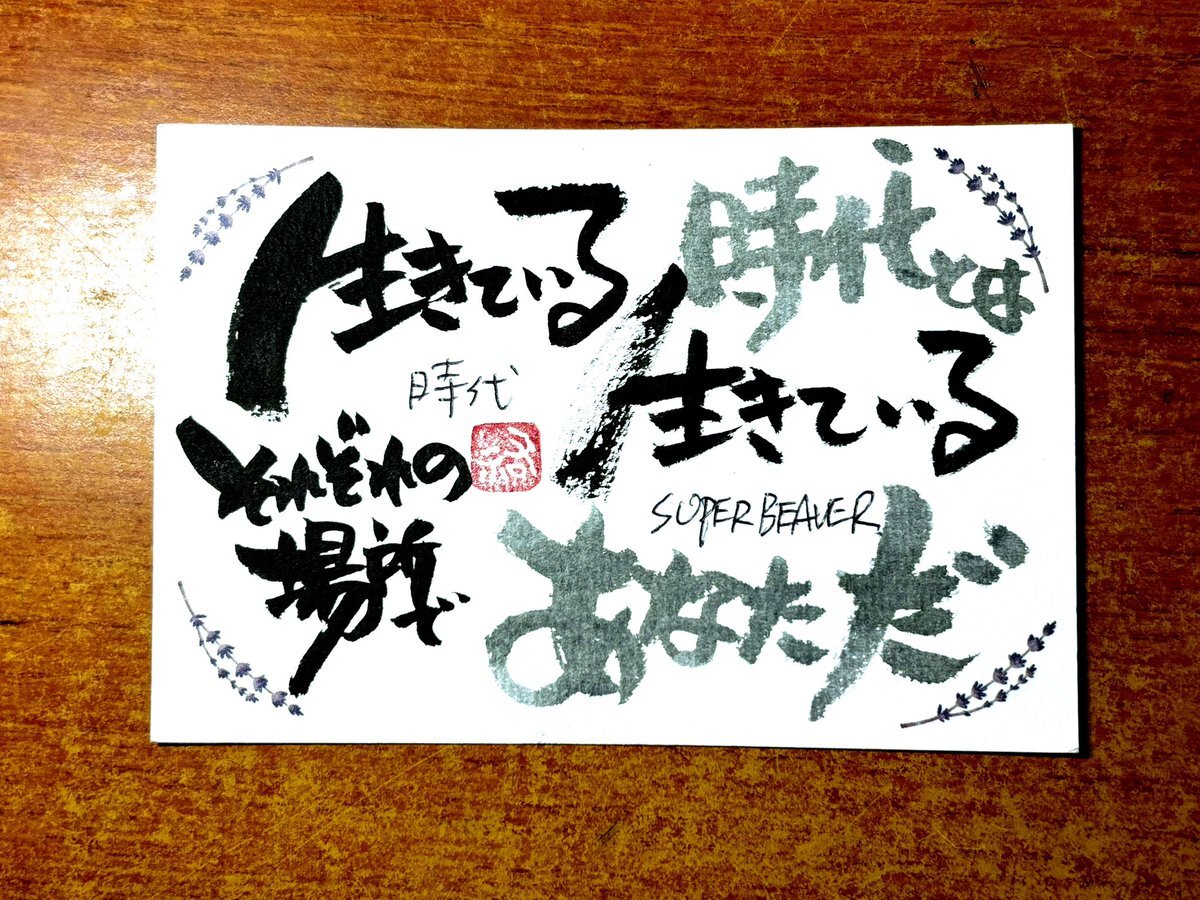 生きている
時代とは
生きている
時代
それぞれの
場所で
SUPER BEAVER
あなただ